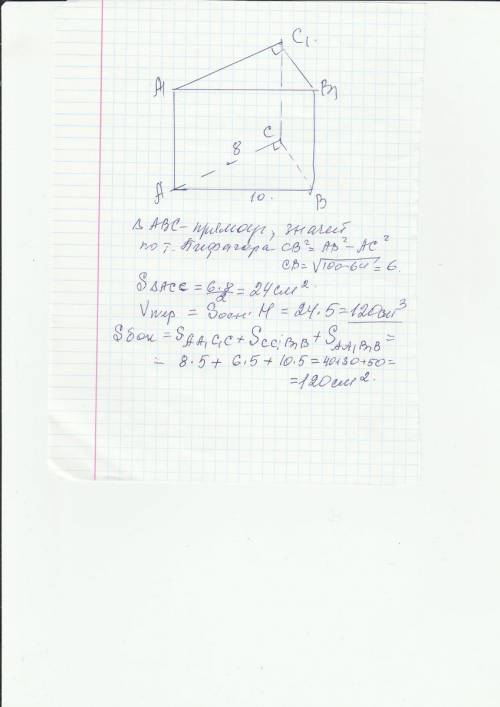 C₁.
A₁ B₁
C
8
A 10. B
Δ ABC - прямоуг, значит
по т. Пифагора CB² = AB² - AC²
CB = √100-64 = 6.
SΔACC = 6·8/2 = 24 см².
Vпр = Sосн· H = 24·5 = 120см³
Sбок = SAA₁C₁C + SCC₁B₁B + SAA₁B₁B =
= 8·5 + 6·5 + 10·5 = 40+30+50 =
= 120см².